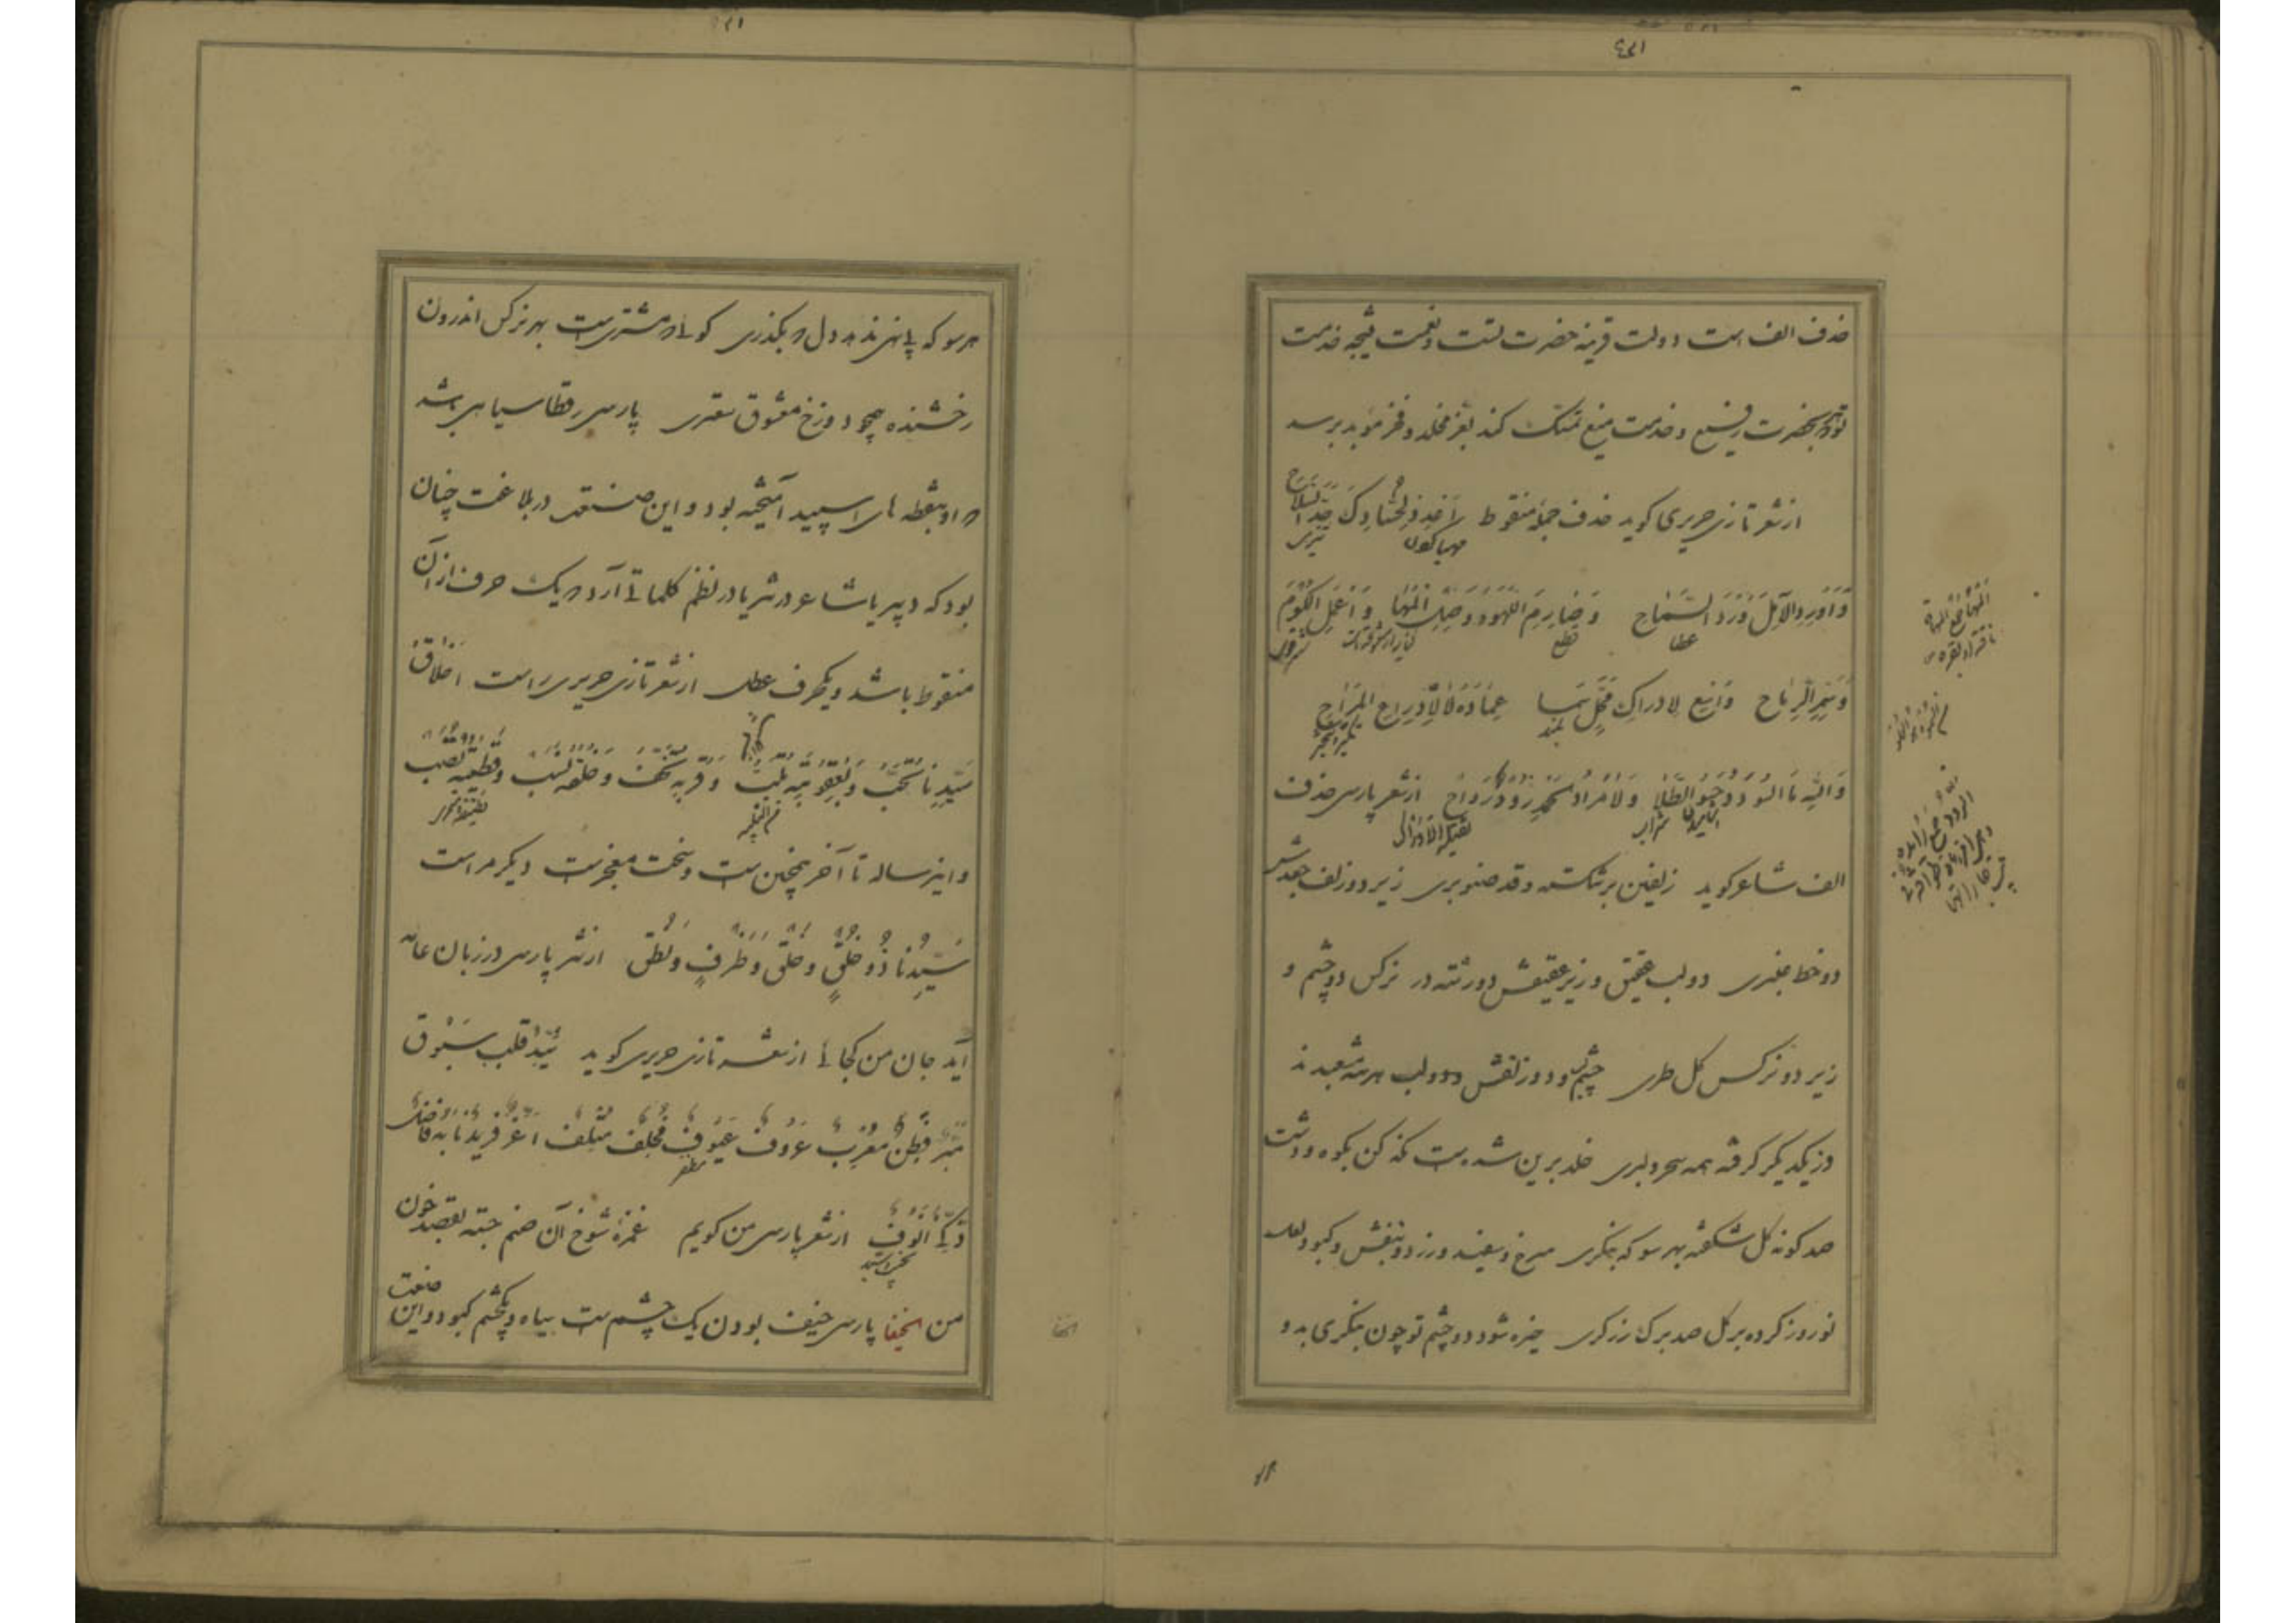 حذف الف است دولت قرینه حضرت تست و نعمت نتیجه خدمت
تو و هر که بحضرت رفیع و خدمت منیع تمسک کند بعز مخلد و فخر مؤبد برسد
از شعر تازی حریری کوید حذف جمله منقوط اَعْدِدْ لِحُسّادِکَ حَدَّ السِّلاحِ
وَاَوْرِدِ الآمِلَ وِرْدَ السَّمَاحِ وَصَارِمِ اللَّهْوَ وَوَصْلَ الْمَهَا وَاَعْمِلِ الْکُومَ
وَسُمْرَ الرِّمَاحِ وَاسْعَ لِادراکِ مَحَلٍّ سَمَا عِمَادُهُ لَا لِادِّرَاعِ المِرَاحِ
وَاللهِ مَا السُّؤدَدُ حَسْوُ الطِّلَا وَلَا مُرَادُ الْحَمْدِ رُؤدٌ رَدَاحْ از شعر پارسی حذف
الف شاعر کوید زلفین بر شکسته و قد صنوبری زیر دو زلف جعدش
دو خط عنبری دو لب عقیق و زیر عقیقش دو رشته در نرکس دو چشم و
زیر دو نرکس کل طری چشم و دو زلفش و دو لب هر سه مشعبدند
وز یکدیکر کرفته همه سحر و دلبری خلد برین شده ست نکه کن بکوه و دشت
صد کونه کل شکفته بهر سو که بنکری سرخ و سفید و زرد و بنفش و کبود و لعل
نوروز کرده بر کل صد برک زرکری خیره شود دو چشم تو چون بنکری بدو
هر سو که پای نهی و بهر دل که بکذری کوئی که مشتریست بهر نرکس اندرون
رخشنده همچو دو رخ معشوق سعتری پارسی رقطا سیاهی باشد
که او بنقطه های اسپید آمیخته بود و این صنعت در بلاغت چنان
بود که دبیر یا شاعر در نثر یا در نظم کلماتی آرد که یک حرف از آن
منقوط باشد و یکحرف عطل از نثر تازی حریری راست اَخْلَاقُ
سَیِّدِنَا تُحَبُّ وَبِعَقْوَتِهِ یُلَبُّ وَقُرْبُهُ تُحَفٌ وَ خُلَّتُهُ نَسَبٌ وَقَطِیعَتُهُ نَصَبٌ
و این رساله تا آخر همچنین است و سخت معجزست دیکر مراست
سَیِّدُنَا ذُو خُلُقٍ وَخَلْقٍ وَظَرْفٍ وَنُطْقٍ از نثر پارسی در زبان عامه
آید جان من کجائی از شعر تازی حریری کوید سَیِّدٌ قُلَّبٌ سَبُوقٌ
مُبِرٌّ فَطِنٌ مُغْرِبٌ عَزُوفٌ عَیُوفٌ مُخْلِفٌ مُتْلِفٌ اَغَرُّ فَرِیدٌ نَابِهٌ فَاضِلٌ
ذَکِیٌّ اَنُوفٌ از شعر پارسی من کویم غمزهٔ شوخ آن صنم جسته بقصد خون
من الخیفا پارسی خیف بودن یک چشم ست سیاه و یکچشم کبود و این صنعت